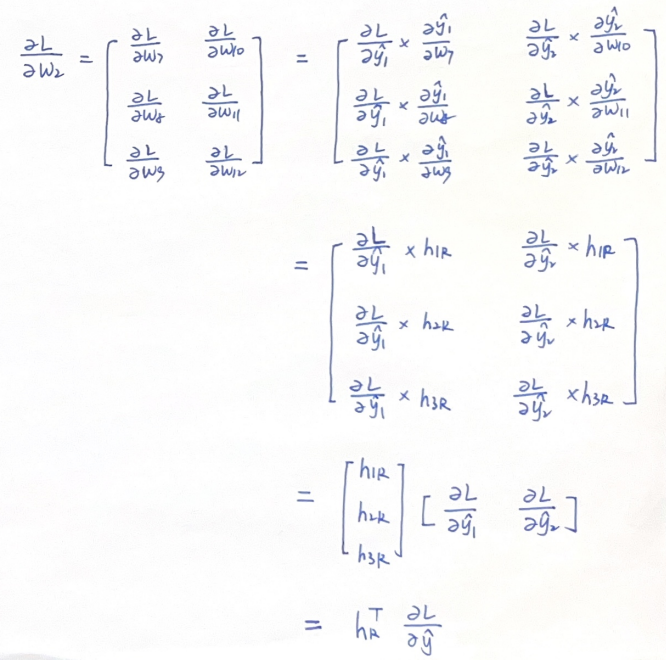 ∂L/∂W₂ = [ ∂L/∂w₇ ∂L/∂w₁₀ ; ∂L/∂w₈ ∂L/∂w₁₁ ; ∂L/∂w₉ ∂L/∂w₁₂ ] = [ ∂L/∂ŷ₁ × ∂ŷ₁/∂w₇ ∂L/∂ŷ₂ × ∂ŷ₂/∂w₁₀ ; ∂L/∂ŷ₁ × ∂ŷ₁/∂w₈ ∂L/∂ŷ₂ × ∂ŷ₂/∂w₁₁ ; ∂L/∂ŷ₁ × ∂ŷ₁/∂w₉ ∂L/∂ŷ₂ × ∂ŷ₂/∂w₁₂ ]
= [ ∂L/∂ŷ₁ × h1R ∂L/∂ŷ₂ × h1R ; ∂L/∂ŷ₁ × h2R ∂L/∂ŷ₂ × h2R ; ∂L/∂ŷ₁ × h3R ∂L/∂ŷ₂ × h3R ]
= [ h1R ; h2R ; h3R ] [ ∂L/∂ŷ₁ ∂L/∂ŷ₂ ]
= h_R^T ∂L/∂ŷ